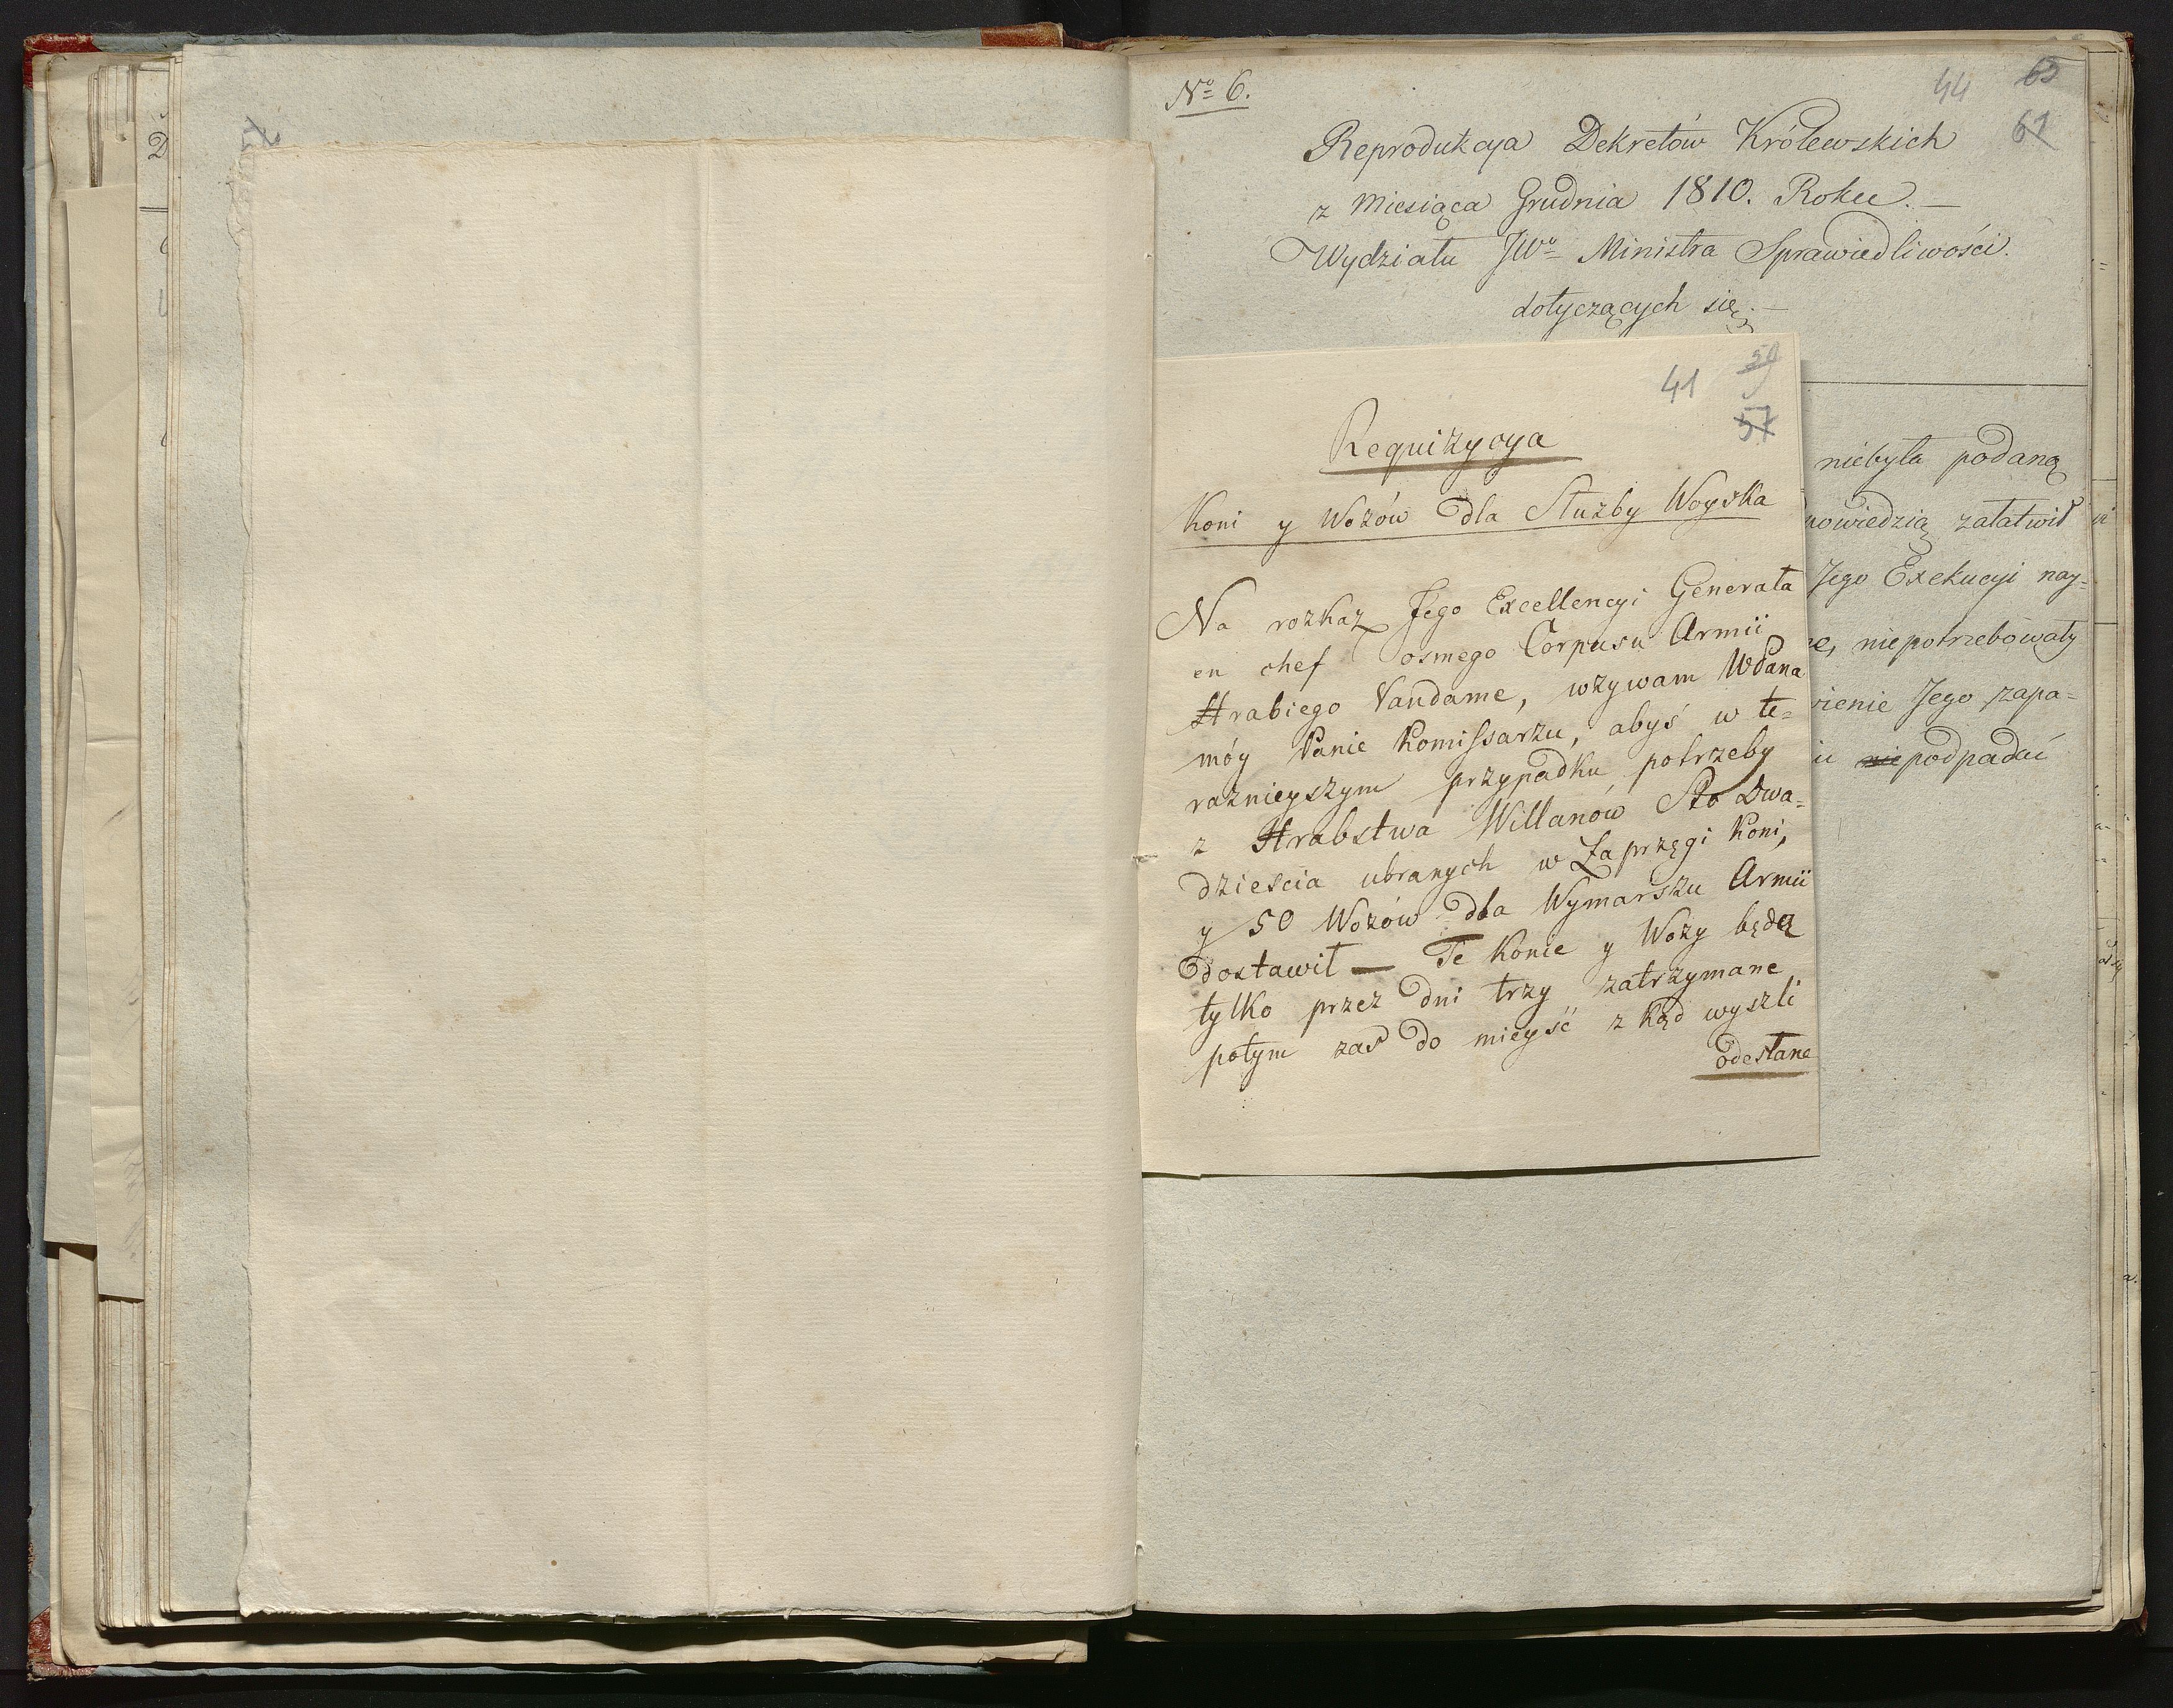 No 6.
44 65
61
Reprodukcya Dekretów Królewskich
z Miesiąca Grudnia 1810. Roku. —
Wydziału JWo Ministra Sprawiedliwości.
dotyczących się. —
41 59
57
Requizycya
Koni y Wozów dla Służby Woyska
Na rozkaz Jego Excellencyi Generała
en chef osmego Corpusu Armii
Hrabiego Vandame, wzywam WPana
móy Panie Komissarzu, abyś w te=
raznieyszym przypadku potrzeby
z Hrabstwa Willanów Sto Dwa=
dzieścia ubranych w Zaprzęgi Koni,
y 50 Wozów dla Wymarszu Armii
dostawił — Te Konie y Wozy będą
tylko przez dni trzy zatrzymane
potym zas do mieyść z kąd wyszli
odesłane
niebyła podaną
powiedzią załatwił
Jego Exekucyi nay=
niepotrzebowały
Jego zapa=
nie podpadać